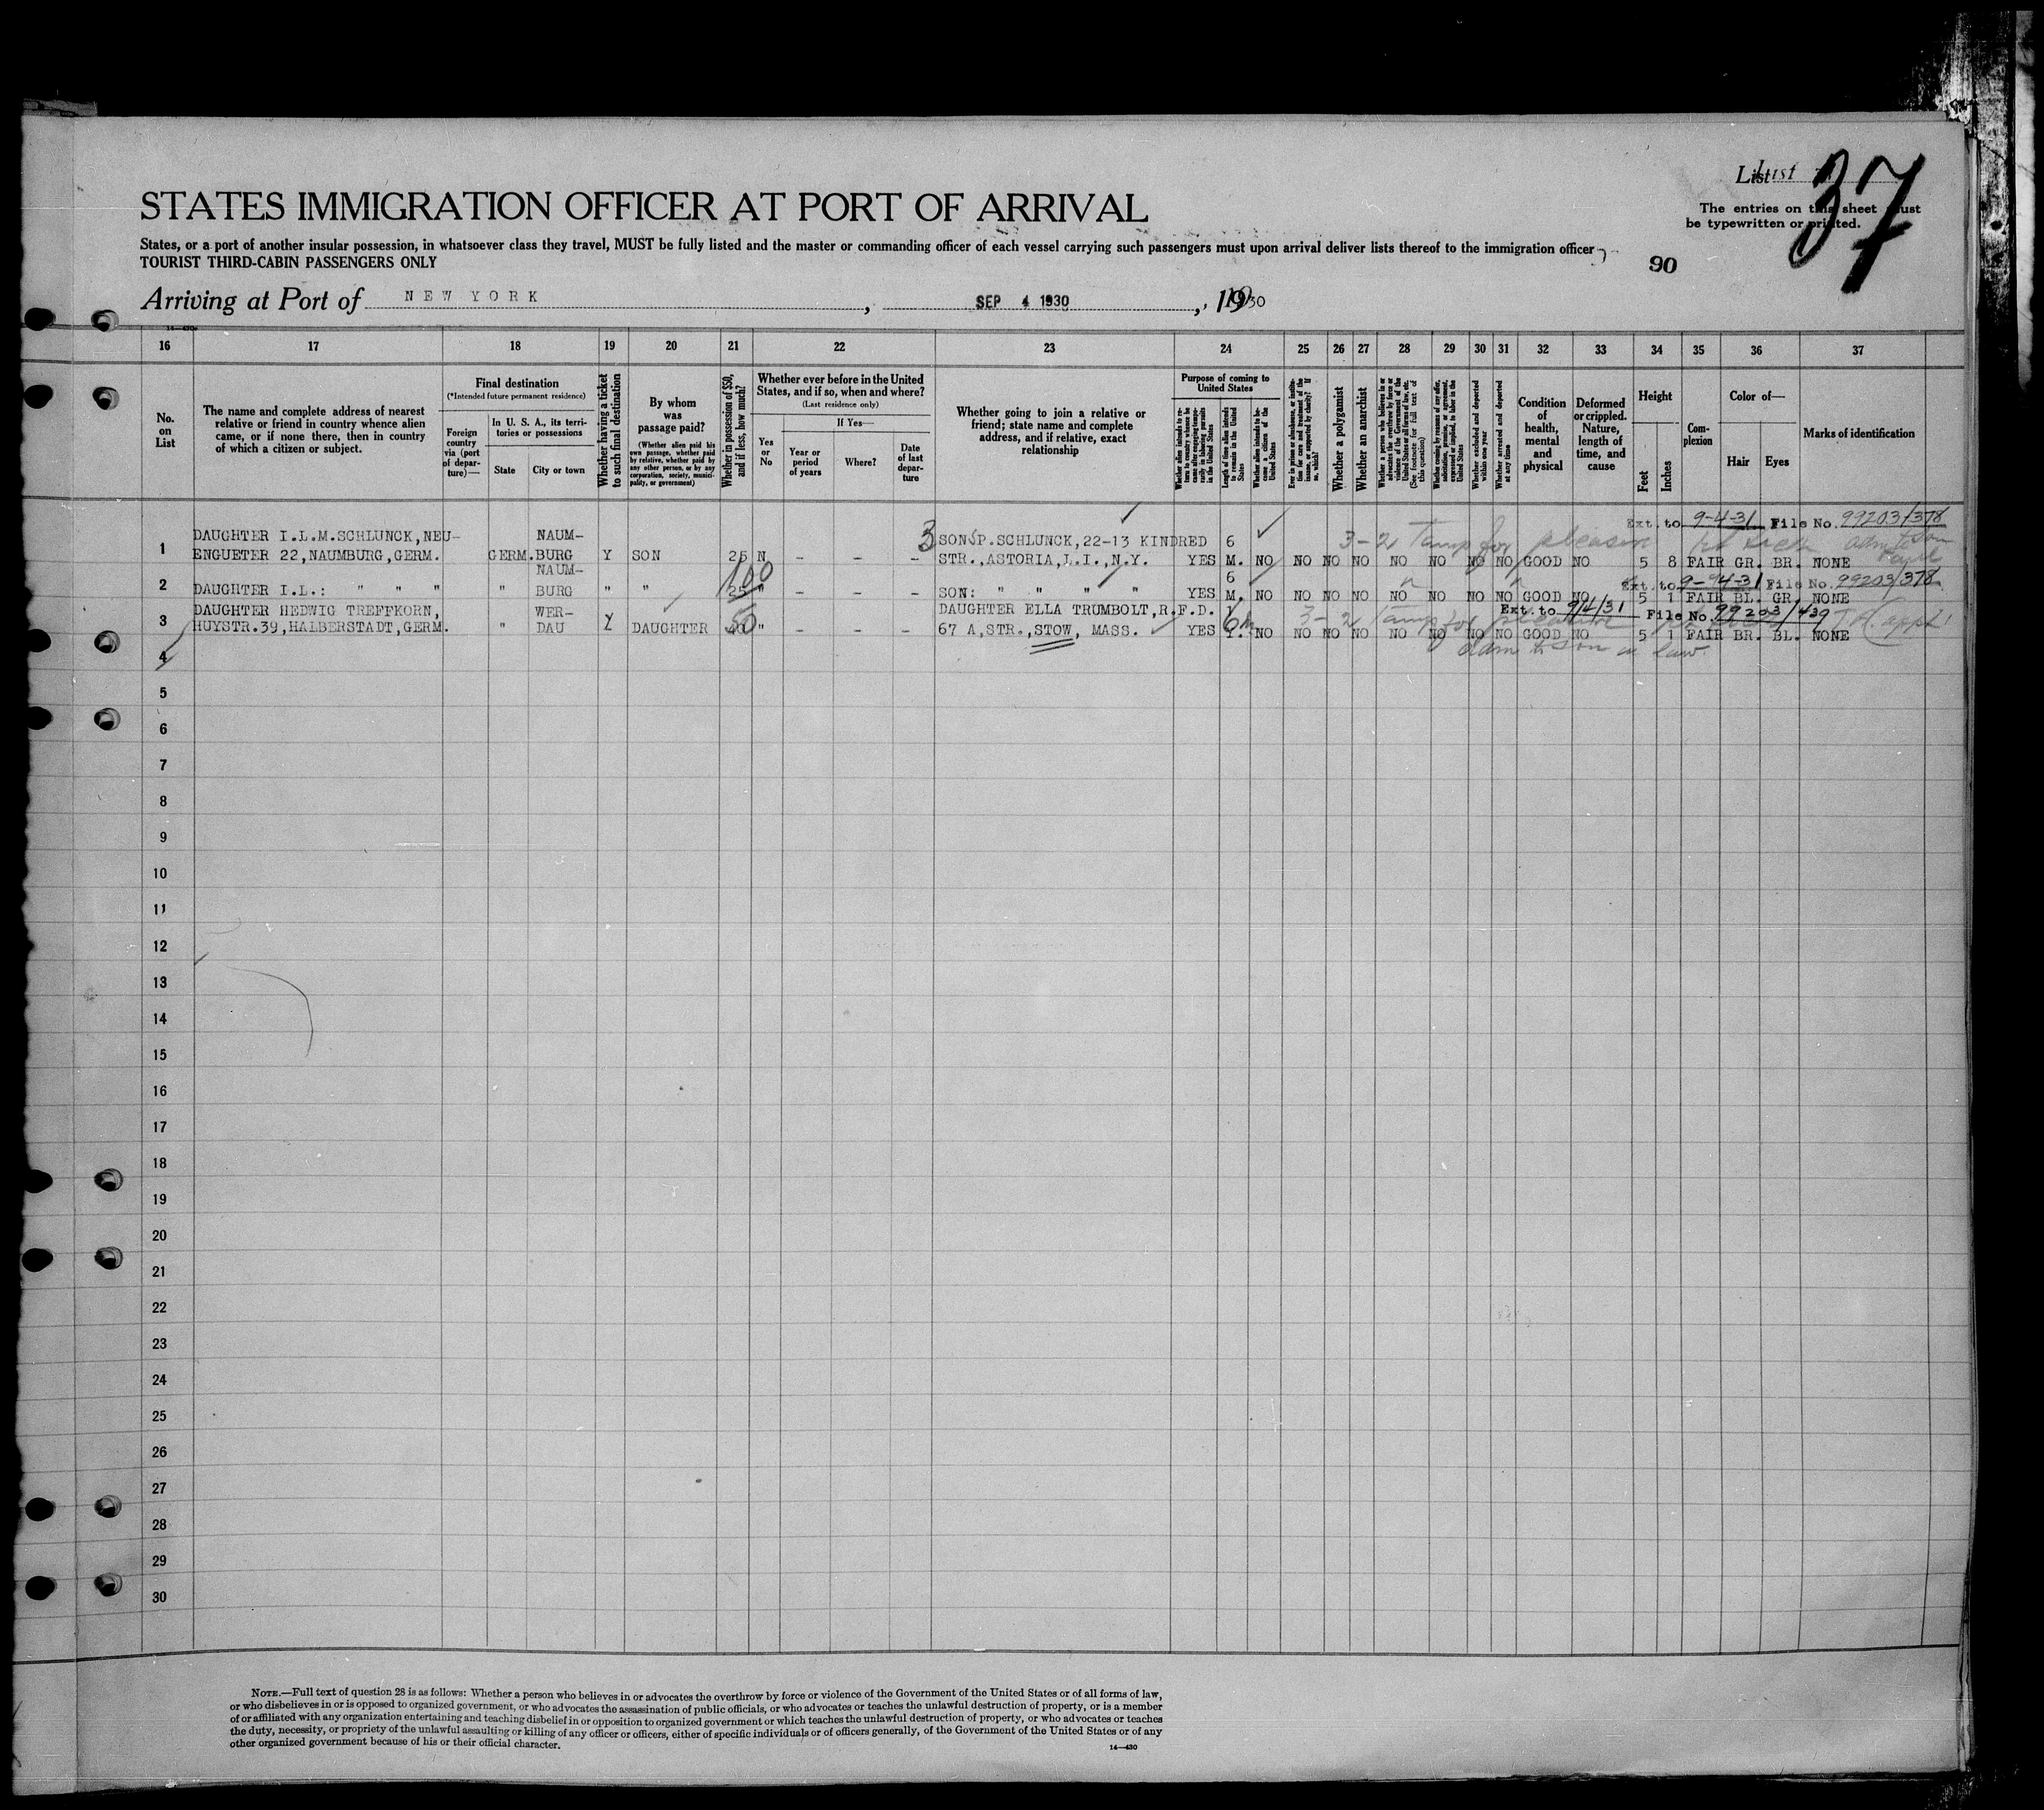 List 1st
37
STATES IMMIGRATION OFFICER AT PORT OF ARRIVAL
The entries on this sheet must
be typewritten or printed.
States, or a port of another insular possession, in whatsoever class they travel, MUST be fully listed and the master or commanding officer of each vessel carrying such passengers must upon arrival deliver lists thereof to the immigration officer
TOURIST THIRD-CABIN PASSENGERS ONLY
90
Arriving at Port of NEW YORK, SEP 4 1930, 1930
14—430
16 17 18 19 20 21 22 23 24 25 26 27 28 29 30 31 32 33 34 35 36 37
No. on List
The name and complete address of nearest
relative or friend in country whence alien
came, or if none there, then in country
of which a citizen or subject.
Final destination
(*Intended future permanent residence)
Foreign country via (port of departure)—
In U. S. A., its territories or possessions
State City or town
Whether having a ticket to such final destination
By whom was passage paid?
(Whether alien paid his own passage, whether paid by relative, whether paid by any other person, or by any corporation, society, municipality, or government)
Whether in possession of $50, and if less, how much?
Whether ever before in the United States, and if so, when and where?
(Last residence only)
Yes or No
If Yes—
Year or period of years
Where?
Date of last departure
Whether going to join a relative or
friend; state name and complete
address, and if relative, exact
relationship
Purpose of coming to United States
Whether alien intends to return to country whence he came after engaging temporarily in laboring pursuits in the United States
Length of time alien intends to remain in the United States
Whether alien intends to become a citizen of the United States
Ever in prison or almshouse, or institution for care and treatment of the insane, or supported by charity? If so, which?
Whether a polygamist
Whether an anarchist
Whether a person who believes in or advocates the overthrow by force or violence of the Government of the United States or all forms of law, etc. (See footnote for full text of this question)
Whether coming by reason of any offer, solicitation, promise, or agreement, expressed or implied, to labor in the United States
Whether excluded and deported within one year
Whether arrested and deported at any time
Condition of health, mental and physical
Deformed or crippled. Nature, length of time, and cause
Height
Feet Inches
Complexion
Color of—
Hair Eyes
Marks of identification
Ext. to 9-4-31 File No. 99203/378
3-2 Temp for pleasure
1 DAUGHTER I.L.M.SCHLUNCK, NEU- NAUM- 3 SON: P.SCHLUNCK, 22-13 KINDRED 6
ENGUETER 22, NAUMBURG, GERM. GERM. BURG Y SON 25 N - - - STR., ASTORIA, L.I., N.Y. YES M. NO NO NO NO NO NO NO NO GOOD NO 5 8 FAIR GR. BR. NONE
NAUM- 100 6 Ext. to 9-4-31 File No. 99203/378
2 DAUGHTER I.L.: " " " " BURG " " 25 " - - - SON: " " " " YES M. NO NO NO NO NO NO NO NO GOOD NO 5 1 FAIR BL. GR. NONE
3 DAUGHTER HEDWIG TREFFKORN, WER- 50 DAUGHTER ELLA TRUMBOLT, R.F.D. 1 6m Ext. to 9/4/31 File No. 99203/439
HUYSTR.39, HALBERSTADT, GERM. " DAU Y DAUGHTER 40 " - - - 67 A, STR., STOW, MASS. YES Y. NO NO NO NO NO NO NO NO GOOD NO 5 1 FAIR BR. BL. NONE
3-2 Temp for pleasure
adm to son in law
4
5
6
7
8
9
10
11
12
13
14
15
16
17
18
19
20
21
22
23
24
25
26
27
28
29
30
NOTE.—Full text of question 28 is as follows: Whether a person who believes in or advocates the overthrow by force or violence of the Government of the United States or of all forms of law,
or who disbelieves in or is opposed to organized government, or who advocates the assassination of public officials, or who advocates or teaches the unlawful destruction of property, or is a member
of or affiliated with any organization entertaining and teaching disbelief in or opposition to organized government or which teaches the unlawful destruction of property, or who advocates or teaches
the duty, necessity, or propriety of the unlawful assaulting or killing of any officer or officers, either of specific individuals or of officers generally, of the Government of the United States or of any
other organized government because of his or their official character.
14—430